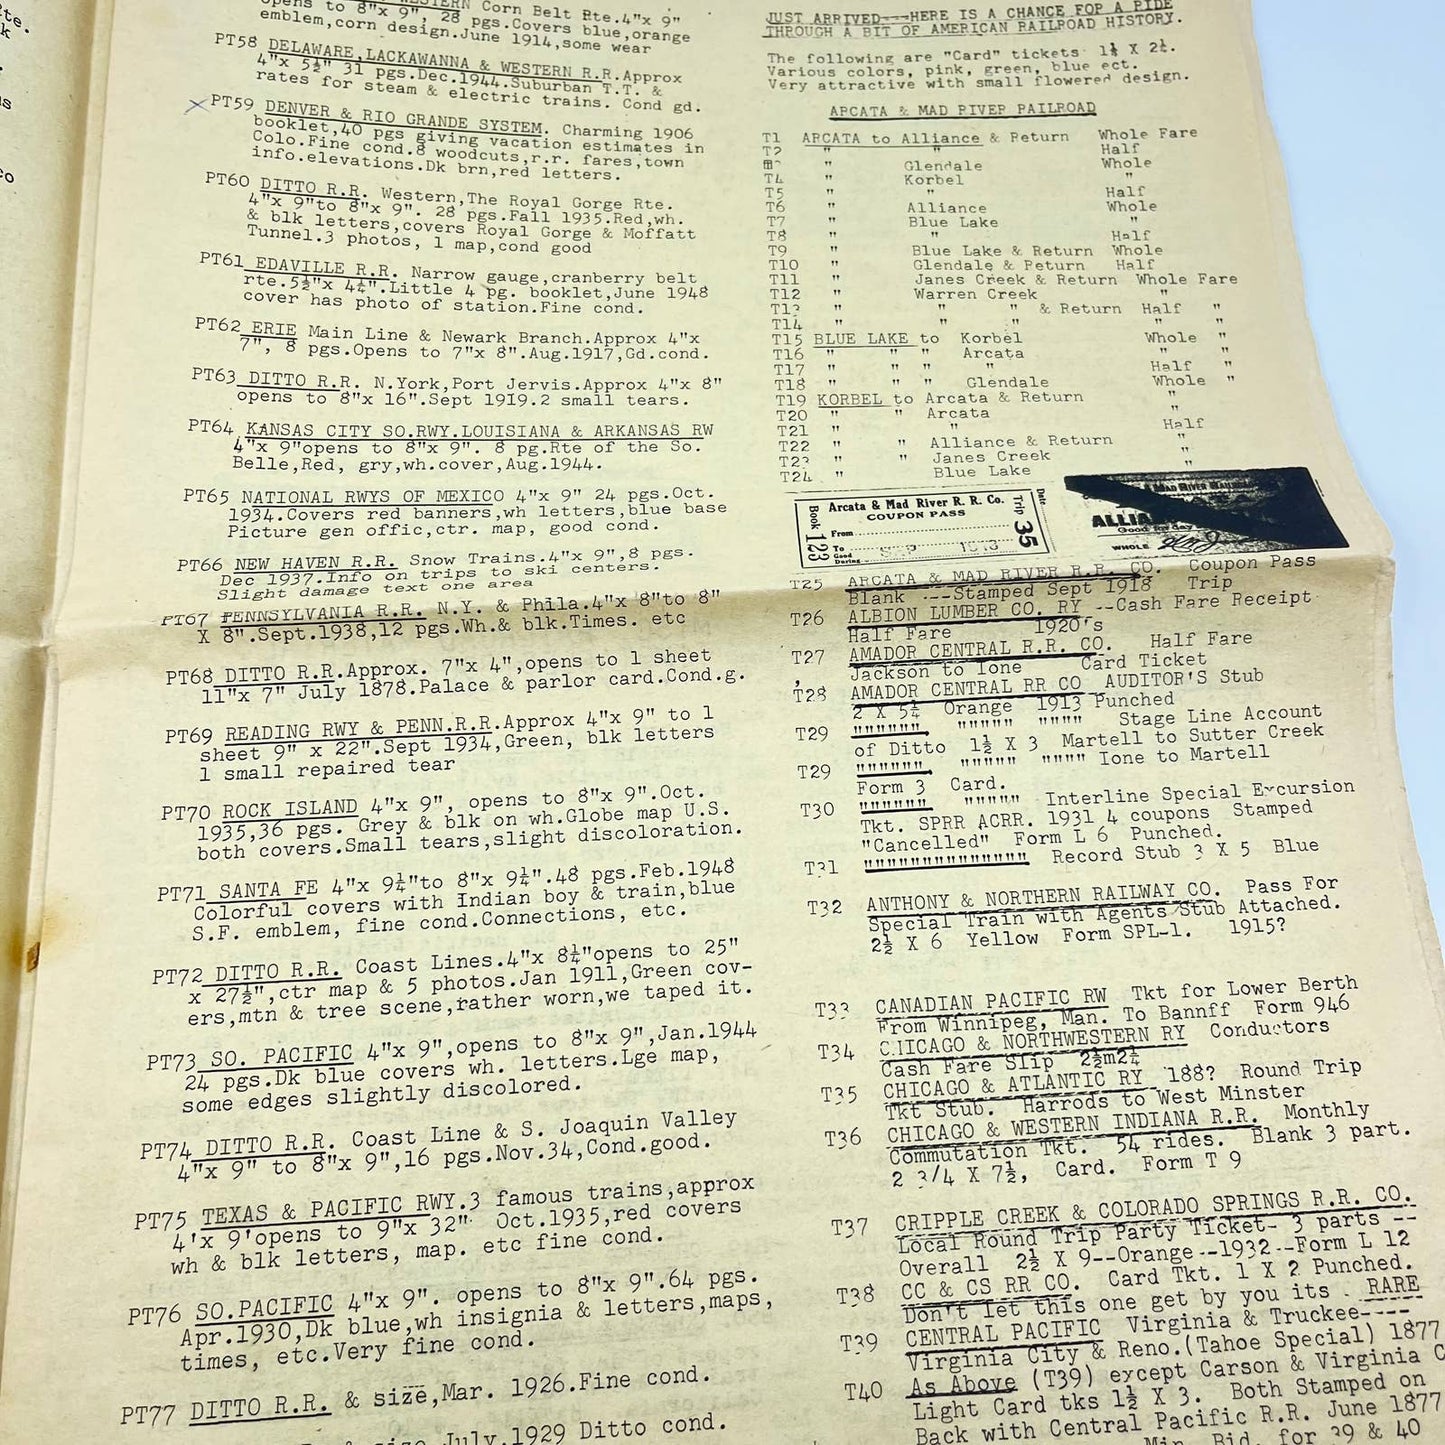 WESTERN Corn Belt Rte.4"x 9"
opens to 8"x 9", 28 pgs.Covers blue,orange
emblem,corn design.June 1914,some wear
PT58 DELAWARE,LACKAWANNA & WESTERN R.R.Approx
4"x 5½" 31 pgs.Dec.1944.Suburban T.T. &
rates for steam & electric trains. Cond gd.
PT59 DENVER & RIO GRANDE SYSTEM. Charming 1906
booklet,40 pgs giving vacation estimates in
Colo.Fine cond.8 woodcuts,r.r. fares,town
info.elevations.Dk brn,red letters.
PT60 DITTO R.R. Western,The Royal Gorge Rte.
4"x 9"to 8"x 9". 28 pgs.Fall 1935.Red,wh.
& blk letters,covers Royal Gorge & Moffatt
Tunnel.3 photos, 1 map,cond good
PT61 EDAVILLE R.R. Narrow gauge,cranberry belt
rte.5½"x 4¼".Little 4 pg. booklet,June 1948
cover has photo of station.Fine cond.
PT62 ERIE Main Line & Newark Branch.Approx 4"x
7", 8 pgs.Opens to 7"x 8".Aug.1917,Gd.cond.
PT63 DITTO R.R. N.York,Port Jervis.Approx 4"x 8"
opens to 8"x 16".Sept 1919.2 small tears.
PT64 KANSAS CITY SO.RWY.LOUISIANA & ARKANSAS RW
4"x 9"opens to 8"x 9". 8 pg.Rte of the So.
Belle,Red, gry,wh.cover,Aug.1944.
PT65 NATIONAL RWYS OF MEXICO 4"x 9" 24 pgs.Oct.
1934.Covers red banners,wh letters,blue base
Picture gen offic,ctr. map, good cond.
PT66 NEW HAVEN R.R. Snow Trains.4"x 9",8 pgs.
Dec 1937.Info on trips to ski centers.
Slight damage text one area
PT67 PENNSYLVANIA R.R. N.Y. & Phila.4"x 8"to 8"
X 8".Sept.1938,12 pgs.Wh.& blk.Times. etc
PT68 DITTO R.R.Approx. 7"x 4",opens to 1 sheet
11"x 7" July 1878.Palace & parlor card.Cond.g.
PT69 READING RWY & PENN.R.R.Approx 4"x 9" to 1
sheet 9" x 22".Sept 1934,Green, blk letters
1 small repaired tear
PT70 ROCK ISLAND 4"x 9", opens to 8"x 9".Oct.
1935,36 pgs. Grey & blk on wh.Globe map U.S.
both covers.Small tears,slight discoloration.
PT71 SANTA FE 4"x 9¼"to 8"x 9¼".48 pgs.Feb.1948
Colorful covers with Indian boy & train,blue
S.F. emblem, fine cond.Connections, etc.
PT72 DITTO R.R. Coast Lines.4"x 8¼"opens to 25"
x 27½",ctr map & 5 photos.Jan 1911,Green cov-
ers,mtn & tree scene,rather worn,we taped it.
PT73 SO. PACIFIC 4"x 9",opens to 8"x 9",Jan.1944
24 pgs.Dk blue covers wh. letters.Lge map,
some edges slightly discolored.
PT74 DITTO R.R. Coast Line & S. Joaquin Valley
4"x 9" to 8"x 9",16 pgs.Nov.34,Cond.good.
PT75 TEXAS & PACIFIC RWY.3 famous trains,approx
4'x 9'opens to 9"x 32" Oct.1935,red covers
wh & blk letters, map. etc fine cond.
PT76 SO.PACIFIC 4"x 9". opens to 8"x 9".64 pgs.
Apr.1930,Dk blue,wh insignia & letters,maps,
times, etc.Very fine cond.
PT77 DITTO R.R. & size,Mar. 1926.Fine cond.
& size July,1929 Ditto cond.
JUST ARRIVED---HERE IS A CHANCE FOR A RIDE
THROUGH A BIT OF AMERICAN RAILROAD HISTORY.
The following are "Card" tickets 1⅛ X 2¼.
Various colors, pink, green, blue ect.
Very attractive with small flowered design.
ARCATA & MAD RIVER RAILROAD
T1 ARCATA to Alliance & Return Whole Fare
T2 " " Half
" Glendale Whole
T4 " Korbel "
T5 " " Half
T6 " Alliance Whole
T7 " Blue Lake "
T8 " " Half
T9 " Blue Lake & Return Whole
T10 " Glendale & Return Half
T11 " Janes Creek & Return Whole Fare
T12 " Warren Creek "
T13 " " " & Return Half "
T14 " " " " "
T15 BLUE LAKE to Korbel Whole "
T16 " " " Arcata " "
T17 " " " " Half "
T18 " " " Glendale Whole "
T19 KORBEL to Arcata & Return "
T20 " " Arcata "
T21 " " Half
T22 " " Alliance & Return "
T23 " " Janes Creek "
T24 " Blue Lake "
Book 123
Arcata & Mad River R. R. Co.
COUPON PASS
From
To
Good During
Trip 35
Date
MAD RIVER
ALLIA
Good
day
WHOLE
T25 ARCATA & MAD RIVER R.R. CO. Coupon Pass
Blank ---Stamped Sept 1918 Trip
T26 ALBION LUMBER CO. RY --Cash Fare Receipt
Half Fare 1920's
T27 AMADOR CENTRAL R.R. CO. Half Fare
Jackson to Ione Card Ticket
T28 AMADOR CENTRAL RR CO AUDITOR'S Stub
2 X 5¼ Orange 1913 Punched
T29 """""" """"" """" Stage Line Account
of Ditto 1½ X 3 Martell to Sutter Creek
T29 """""" """"" """" Ione to Martell
Form 3 Card.
T30 """""" """"" Interline Special Excursion
Tkt. SPRR ACRR. 1931 4 coupons Stamped
"Cancelled" Form L 6 Punched.
T31 """""""""""""" Record Stub 3 X 5 Blue
T32 ANTHONY & NORTHERN RAILWAY CO. Pass For
Special Train with Agents Stub Attached.
2½ X 6 Yellow Form SPL-1. 1915?
T33 CANADIAN PACIFIC RW Tkt for Lower Berth
From Winnipeg, Man. To Bannff Form 946
T34 CHICAGO & NORTHWESTERN RY Conductors
Cash Fare Slip 2½m2¼
T35 CHICAGO & ATLANTIC RY 188? Round Trip
Tkt Stub. Harrods to West Minster
T36 CHICAGO & WESTERN INDIANA R.R. Monthly
Commutation Tkt. 54 rides. Blank 3 part.
2 3/4 X 7½, Card. Form T 9
T37 CRIPPLE CREEK & COLORADO SPRINGS R.R. CO.
Local Round Trip Party Ticket- 3 parts --
Overall 2½ X 9--Orange--1932--Form L 12
T38 CC & CS RR CO. Card Tkt. 1 X 2 Punched.
Don't let this one get by you its - RARE
T39 CENTRAL PACIFIC Virginia & Truckee----
Virginia City & Reno.(Tahoe Special) 1877
T40 As Above (T39) except Carson & Virginia C
Light Card tks 1½ X 3. Both Stamped on
Back with Central Pacific R.R. June 1877
Min. Bid. for 39 & 40